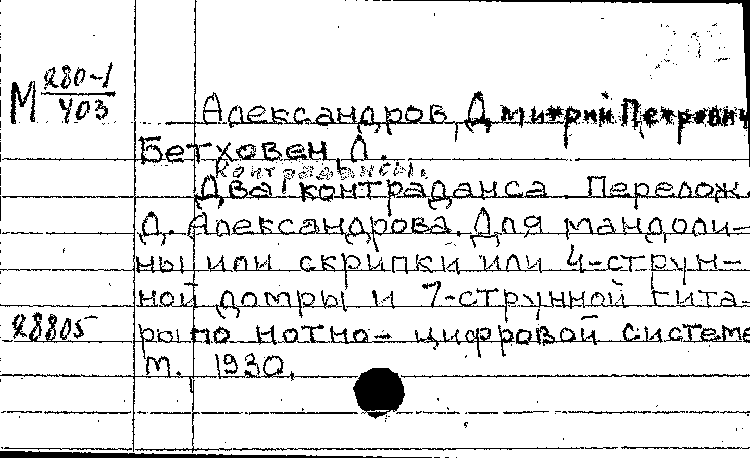 М 280-1
403
Александров, Дмитрий Петрович
Бетховен, Л.
Контрадансы.
Два контраданса. Перелож.
Д. Александрова. Для мандоли-
ны или скрипки или 4-струн-
ной домры и 7-струнной гита-
28805
ры по нотно-цифровой системе
М. 1930.